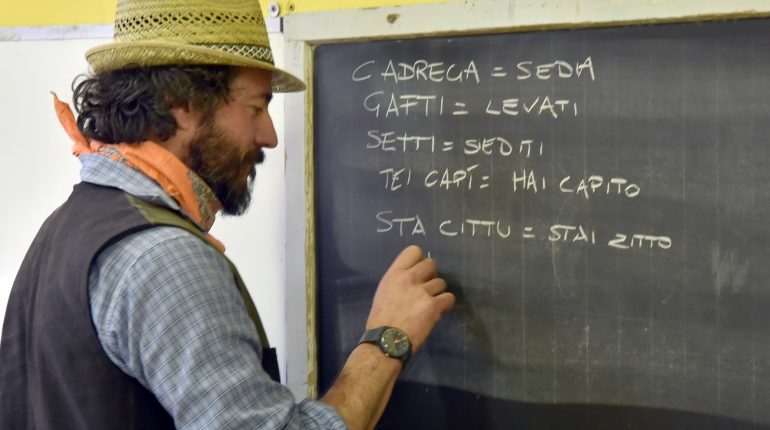 CADREGA = SEDIA
GAFTI = LEVATI
SETTI = SEDITI
TEI CAPÌ = HAI CAPITO
STA CITTU = STAI ZITTO